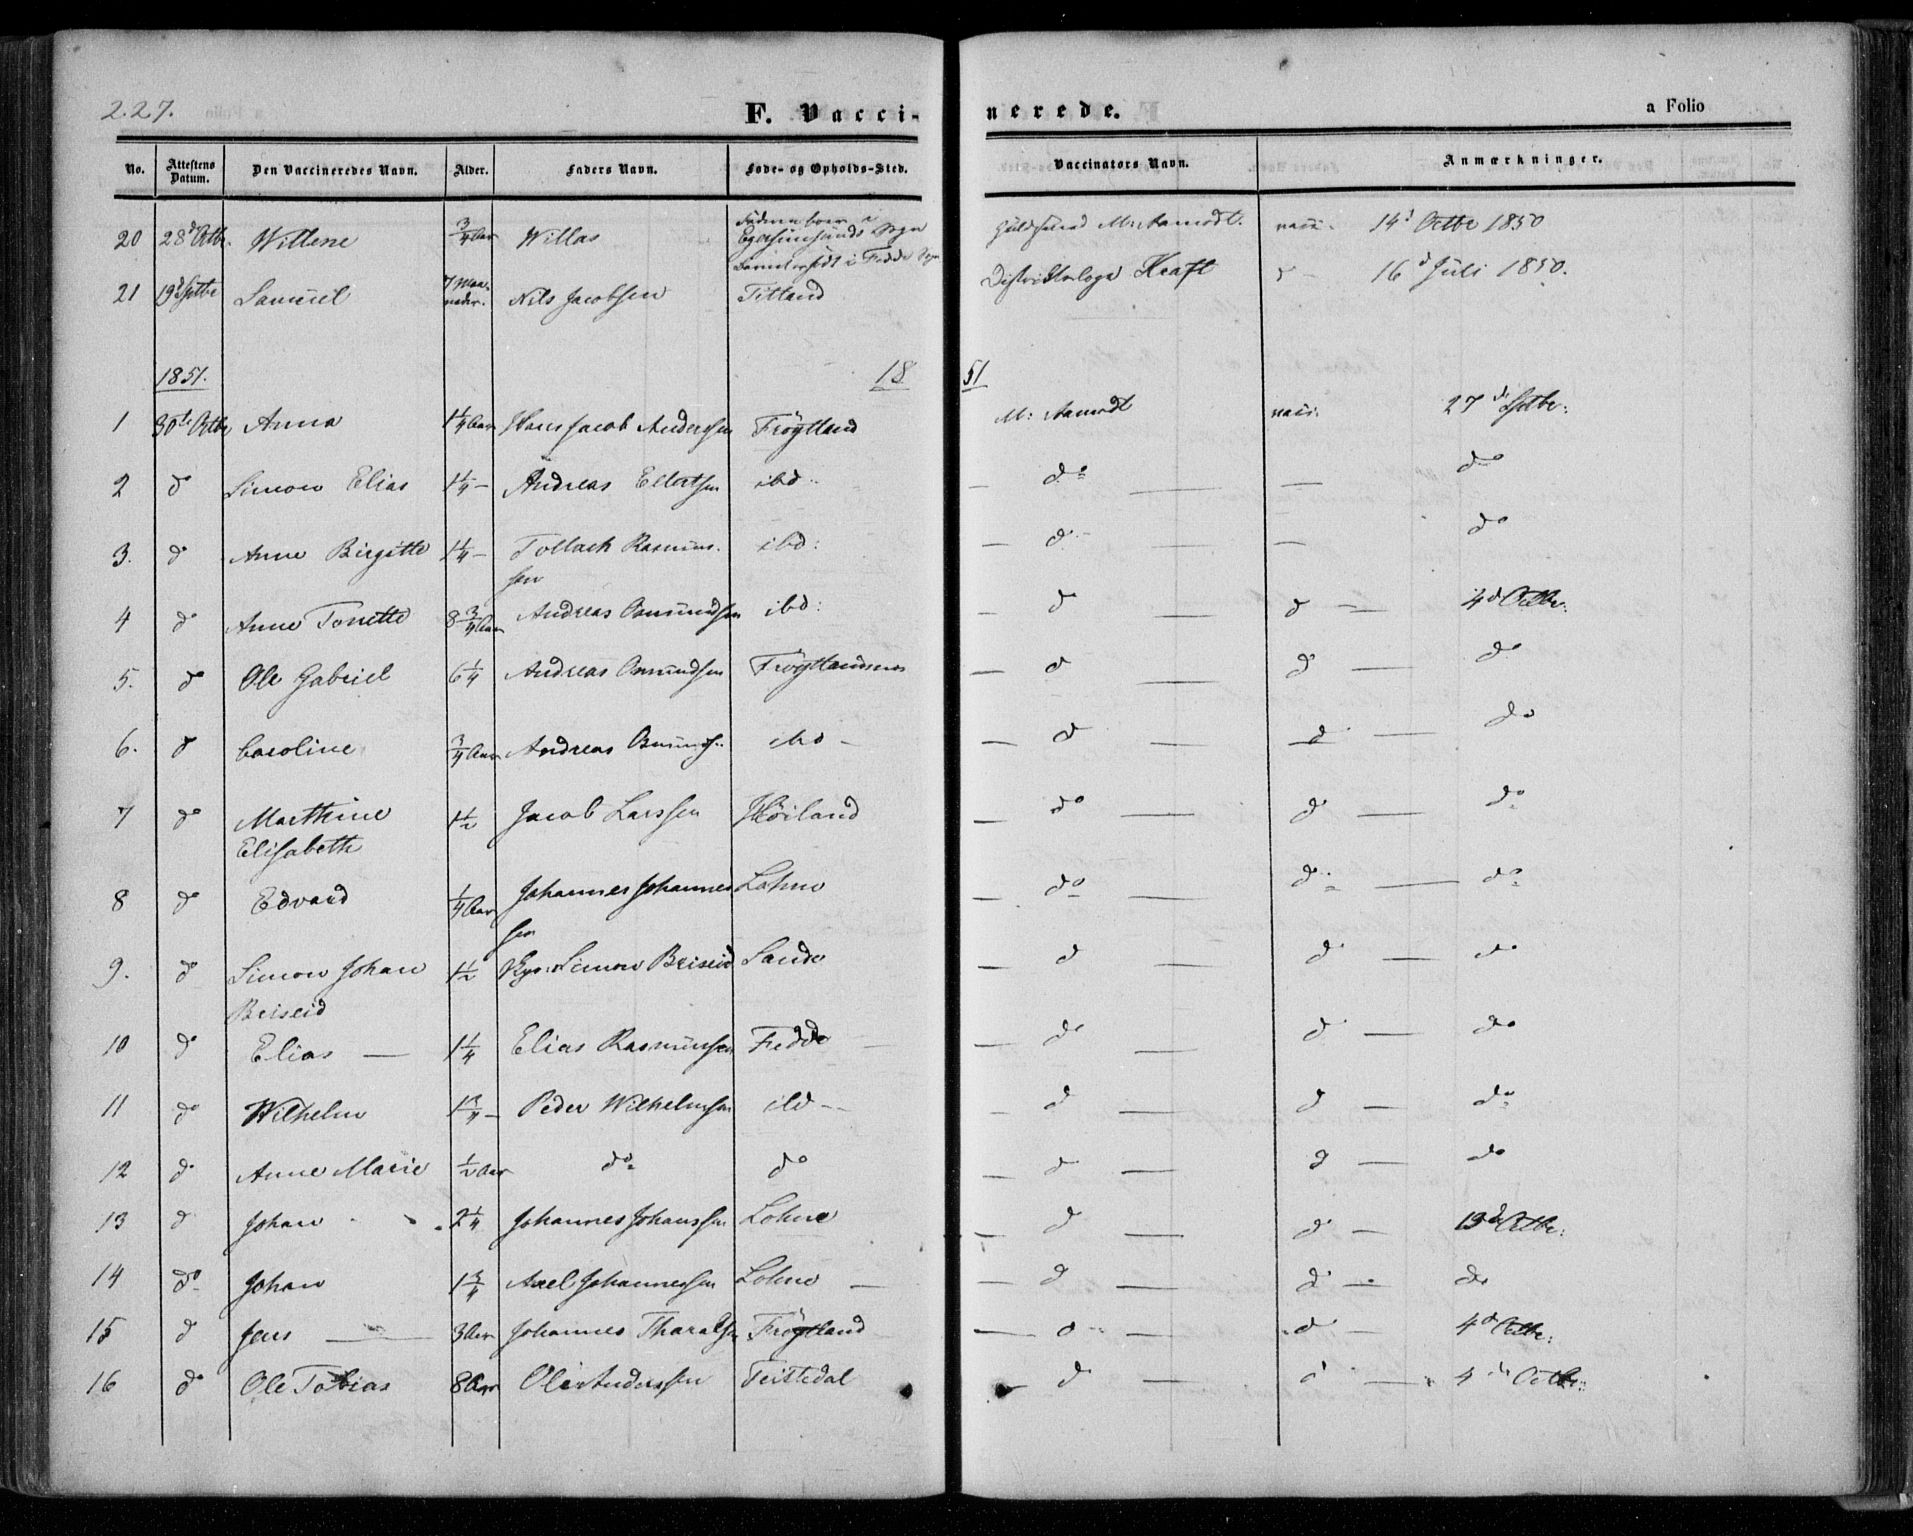 227.
F. Vacci-nerede. a Folio
No. Attestens Datum. Den Vaccineredes Navn. Alder. Faders Navn. Føde- og Opholds-Sted. Vaccinators Navn. Anmærkninger.
20 28d Octbr. Willene 3/4 Aar Willas Egersunds Sogn Fedde M: Aamodt. vacci. 14d Octbr 1850
21 19d Septbr Samuel 7 Maaneder. Nils Jacobsen Titland Kraft d 16d Juli 1850.
1851. 18 51
1 30te Octbr Anna 1 1/4 Aar Hans Jacob Anderssen Fröytland M: Aamodt vacci. 27de Septbr:
2 do Simon Elias 1 1/4 - Andreas Ellertsen ibd. — do — — do
3. do Anne Birgitte 1 1/4 - Tollack Rasmussen ibd: — do — — do
4 do Anne Tonette 8 3/4 Aar Andreas Osmundsen ibd: — do — d — 4d Octbr:
5. do Ole Gabriel 6 1/4 Andreas Osmundsen — d — d — do
6. do Caroline 3/4 Aar Andreas ibd — d — d — do
7 do Marthine Elisabeth 1 1/2 Jacob Larssen Höiland — do — d — do
8 do Edvard 1/4 Aar Johannes Johannessen Lohne — do — do — do
9. do Simon Johan Briseid 1 1/2 Simon Briseid Sande — d — d — do
10 do Elias — 1 1/4 Elias Rasmussen Fedde — d — d — do
11 do Wilhelm 1 3/4 - Peder Wilhelmsen ibd — — d — d — do
12 do Anne Marie 1/2 Aar do do — d — d — do
13 d Johan 2 1/4 Johannes Johanssen Lohne — d — d — 13de Octbr:
14 do Johan 1 3/4 Axel Johannessen Lohne — — d — d — do
15 d Jens — 3 Aar Johannes Tharalsen Fröytland — d — d — 4d Octbr:
16 do Ole Tobias 8 Aar Ole Anderssen Teistedal — d — d — 4de Octbr: